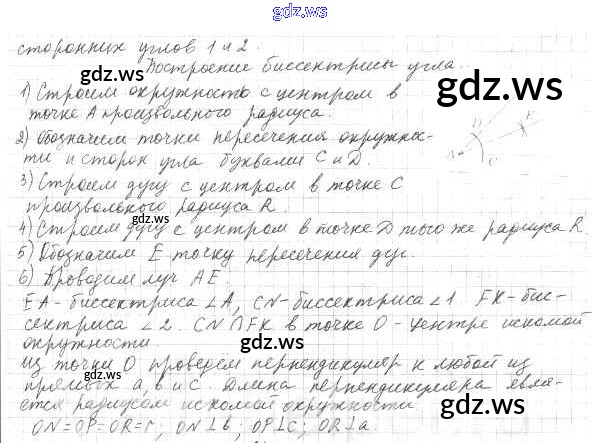 gdz.ws
сторонних углов 1 и 2.
Построение биссектрисы угла.
gdz.ws
gdz.ws
1) Строим окружность с центром в
точке A произвольного радиуса.
2) Обозначим точки пересечения окружнос-
ти и сторон угла буквами C и D.
gdz.ws
3) Строим дугу с центром в точке C
произвольного радиуса R.
4) Строим дугу с центром в точке D того же радиуса R.
5) Обозначим E точку пересечения дуг.
gdz.ws
6) Проводим луч AE.
EA - биссектриса ∠A, CN - биссектриса ∠1 FK - бис-
сектриса ∠2. CN ∩ FK в точке O - центре искомой
окружности.
gdz.ws
Из точки O проведём перпендикуляр к любой из
прямых a, b и c. Длина перпендикуляра явля-
gdz.ws
ется радиусом искомой окружности
gdz.ws
ON = OP = OR = r; ON ⊥ b; OP ⊥ c; OR ⊥ a.
gdz.ws